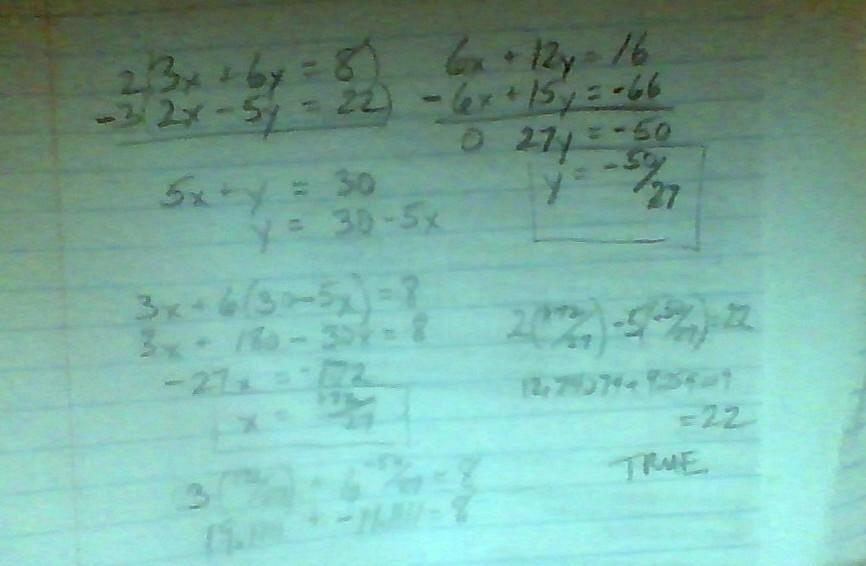 2(3x + 6y = 8)
-3(2x - 5y = 22)
6x + 12y = 16
-6x + 15y = -66
0 27y = -50
y = -50/27
5x + y = 30
y = 30 - 5x
3x + 6(30 - 5x) = 8
3x + 180 - 30x = 8
-27x = -172
x = 172/27
3(172/27) + 6 -50/27 = 8
19.111 + -11.111 = 8
2(172/27) - 5(-50/27) = 22
= 22
TRUE